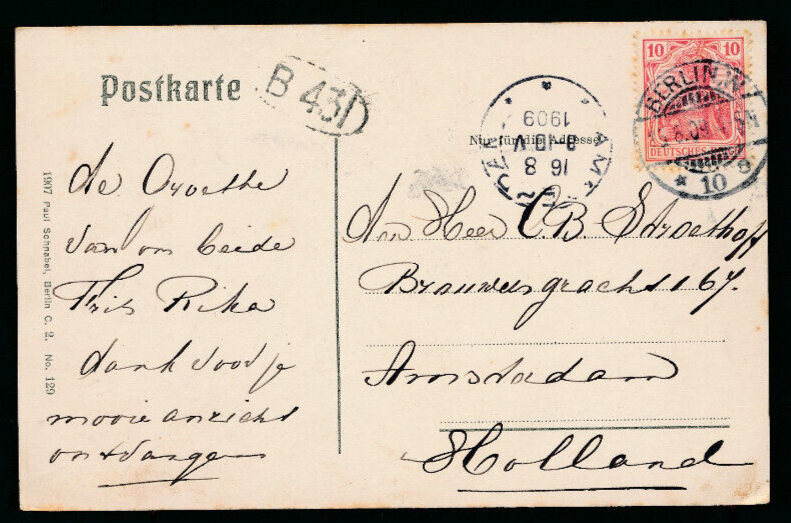 Postkarte
B 431
AM
1909
8-10 V
16 8
Nur für die Adresse
10 10
DEUTSCHES REICH
BERLIN W
8.09
* 10 a
1907 Paul Schnabel, Berlin C. 2. No. 129
de Groethe
van on beide
Frits Rika
dank voor je
mooie anzicht
ontvangen
den Heer C. B. Stroethoff
Brouwersgracht 167.
Amsterdam
Holland